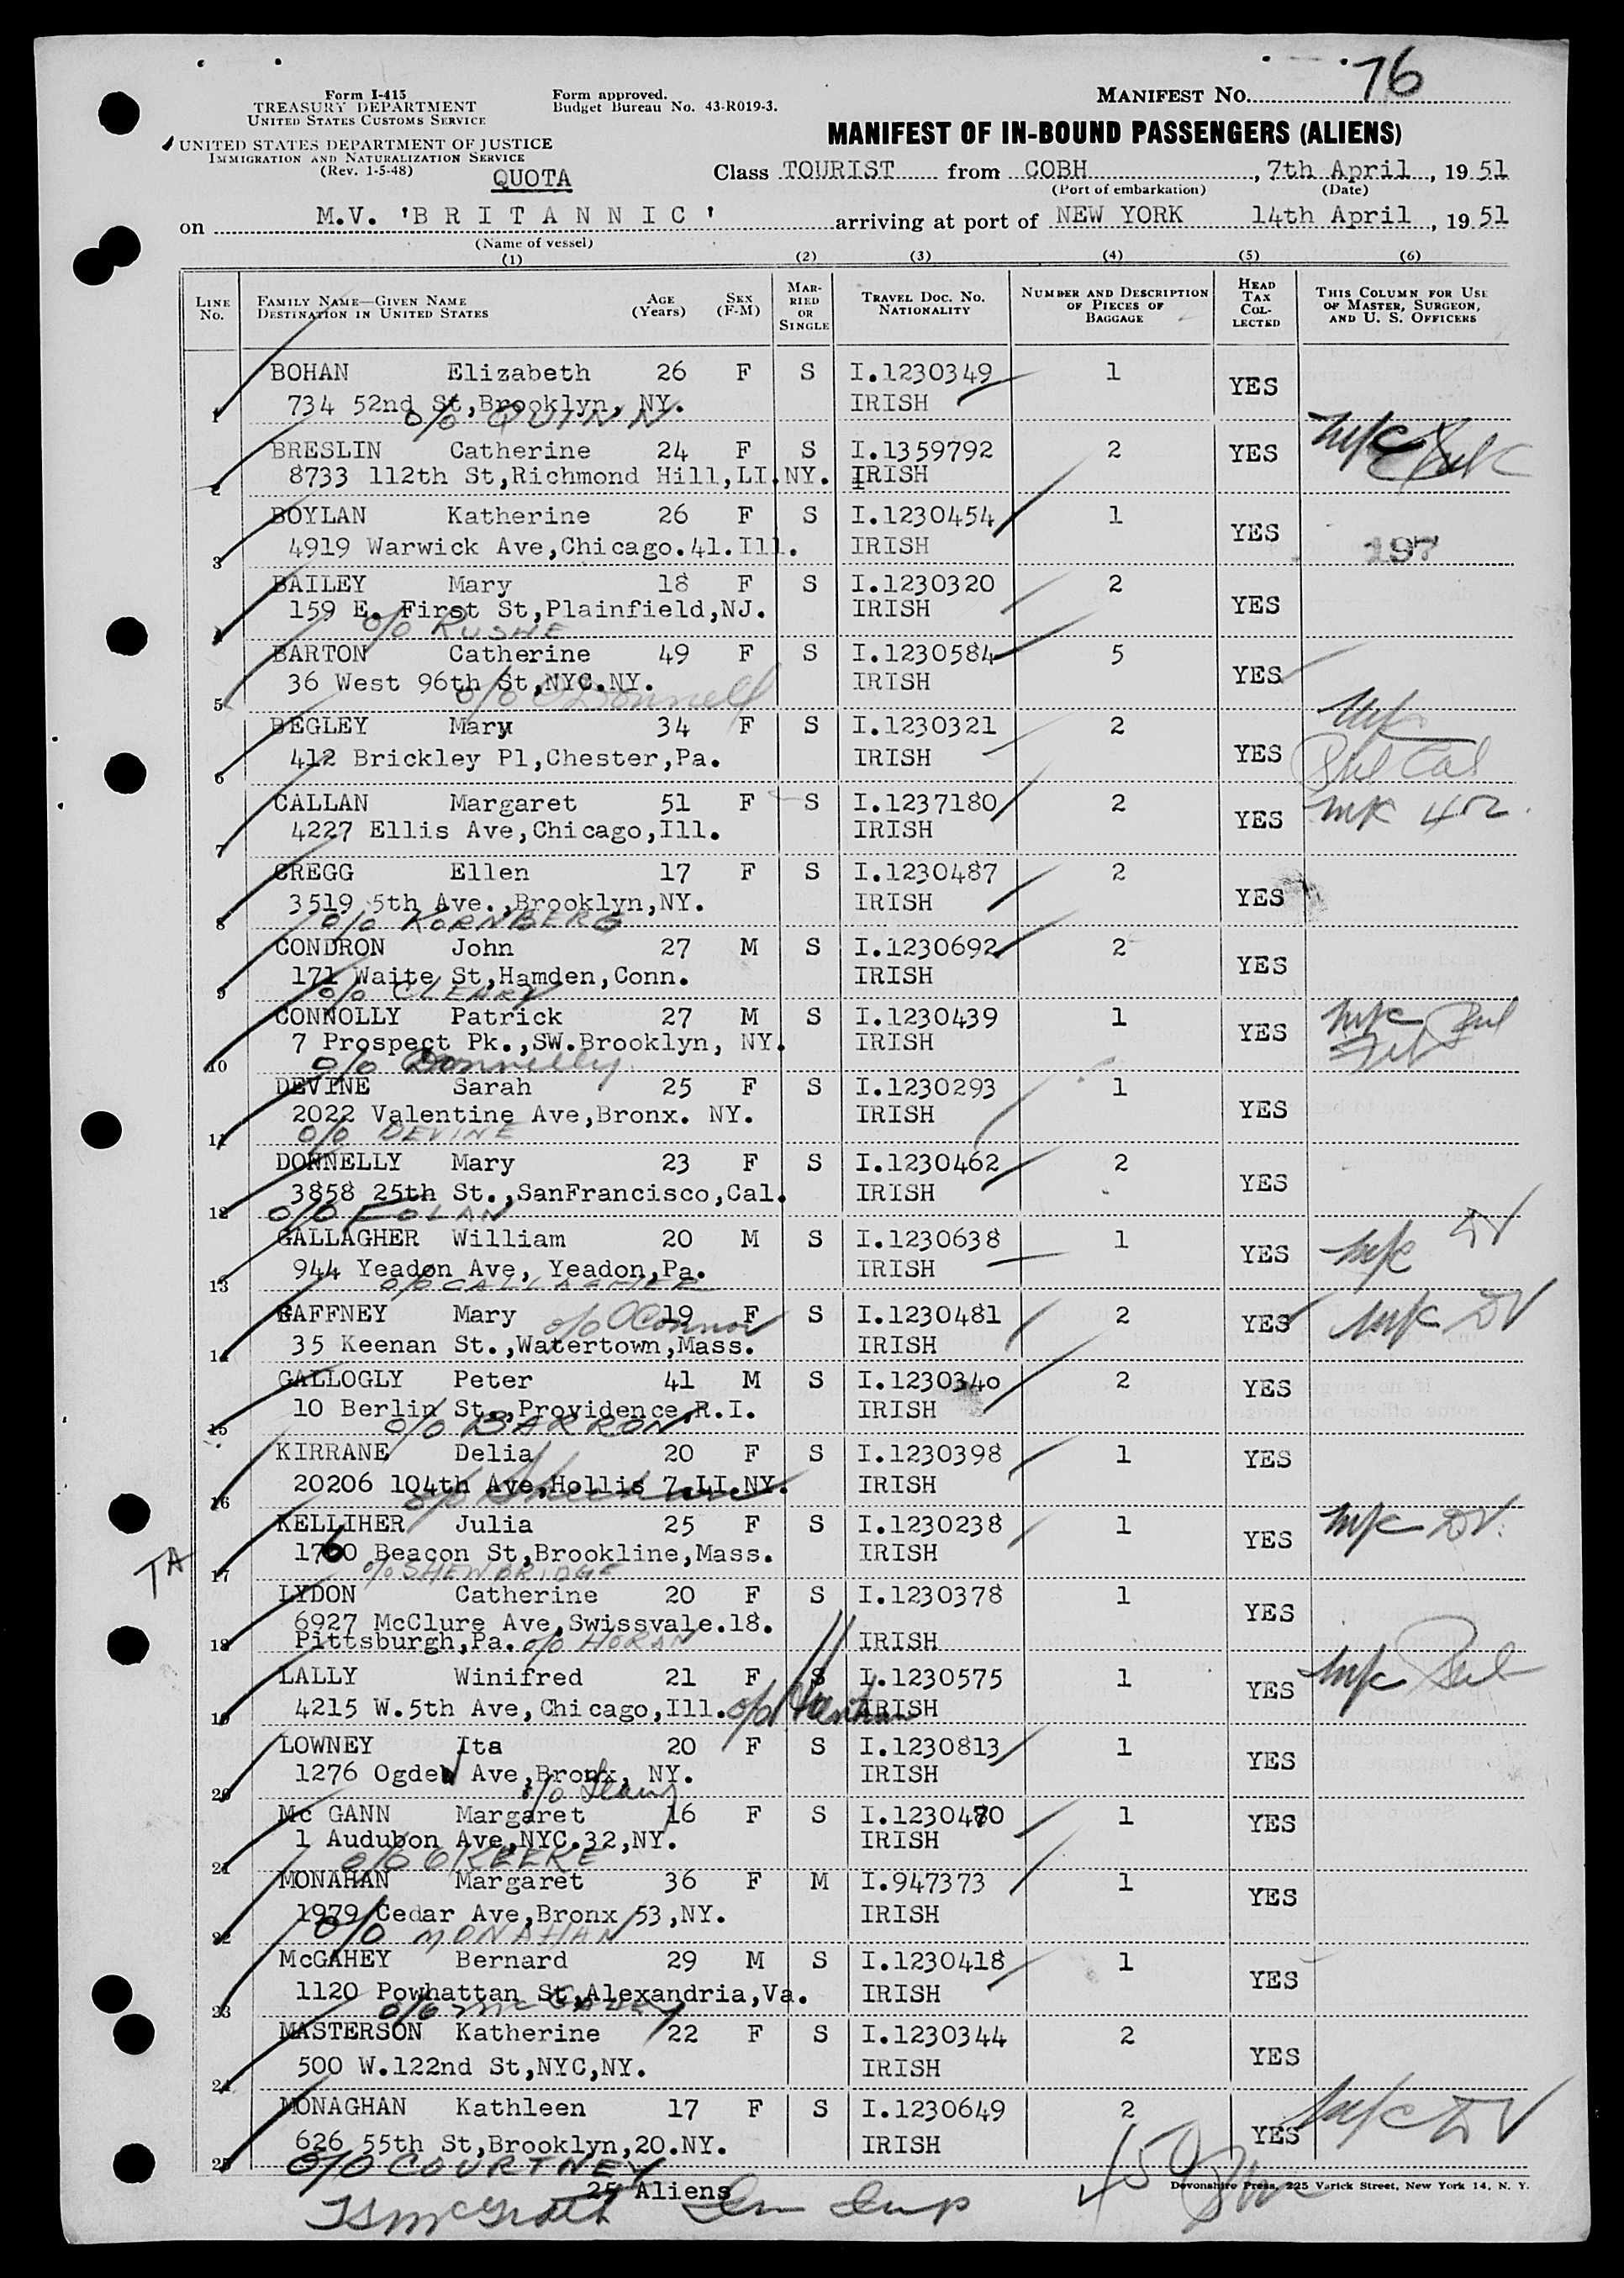 Form I-415
TREASURY DEPARTMENT
UNITED STATES CUSTOMS SERVICE
UNITED STATES DEPARTMENT OF JUSTICE
IMMIGRATION AND NATURALIZATION SERVICE
(Rev. 1-5-48)
QUOTA
Form approved.
Budget Bureau No. 43-R019-3.
MANIFEST No. 76
MANIFEST OF IN-BOUND PASSENGERS (ALIENS)
Class TOURIST from COBH, 7th April, 19 51
(Port of embarkation) (Date)
on M.V. 'B R I T A N N I C' arriving at port of NEW YORK 14th April, 19 51
(Name of vessel)
(1) (2) (3) (4) (5) (6)
LINE No. FAMILY NAME—GIVEN NAME DESTINATION IN UNITED STATES AGE (Years) SEX (F-M) MARRIED OR SINGLE TRAVEL DOC. NO. NATIONALITY NUMBER AND DESCRIPTION OF PIECES OF BAGGAGE HEAD TAX COLLECTED THIS COLUMN FOR USE OF MASTER, SURGEON, AND U. S. OFFICERS
BOHAN Elizabeth 26 F S I.1230349 1 YES
1 734 52nd St,Brooklyn, NY. IRISH
c/o QUINN
BRESLIN Catherine 24 F S I.1359792 2 YES
2 8733 112th St,Richmond Hill,LI.NY. IRISH
BOYLAN Katherine 26 F S I.1230454 1 YES
3 4919 Warwick Ave,Chicago.41.Ill. IRISH 197
BAILEY Mary 18 F S I.1230320 2 YES
4 159 E. First St,Plainfield,NJ. IRISH
c/o RUSHE
BARTON Catherine 49 F S I.1230584 5 YES
5 36 West 96th St,NYC.NY. IRISH
c/o O'Donnell
BEGLEY Mary 34 F S I.1230321 2 YES
6 412 Brickley Pl,Chester,Pa. IRISH
CALLAN Margaret 51 F S I.1237180 2 YES
7 4227 Ellis Ave,Chicago,Ill. IRISH
CREGG Ellen 17 F S I.1230487 2 YES
8 3519 5th Ave.,Brooklyn,NY. IRISH
c/o KORNBERG
CONDRON John 27 M S I.1230692 2 YES
9 171 Waite St,Hamden,Conn. IRISH
c/o CLEARY
CONNOLLY Patrick 27 M S I.1230439 1 YES
10 7 Prospect Pk.,SW.Brooklyn, NY. IRISH
c/o Donnelly
DEVINE Sarah 25 F S I.1230293 1 YES
11 2022 Valentine Ave,Bronx. NY. IRISH
c/o DEVINE
DONNELLY Mary 23 F S I.1230462 2 YES
12 3858 25th St.,SanFrancisco,Cal. IRISH
c/o FOLAN
GALLAGHER William 20 M S I.1230638 1 YES
13 944 Yeadon Ave, Yeadon,Pa. IRISH
c/o GALLAGHER
GAFFNEY Mary 19 F S I.1230481 2 YES
c/o O'Connor
14 35 Keenan St.,Watertown,Mass. IRISH
GALLOGLY Peter 41 M S I.1230340 2 YES
15 10 Berlin St.,Providence,R.I. IRISH
c/o BARRON
KIRRANE Delia 20 F S I.1230398 1 YES
16 20206 104th Ave,Hollis 7.LI.NY. IRISH
KELLIHER Julia 25 F S I.1230238 1 YES
TA 17 1760 Beacon St,Brookline,Mass. IRISH
c/o SHEWBRIDGE
LYDON Catherine 20 F S I.1230378 1 YES
6927 McClure Ave,Swissvale.18.
18 Pittsburgh,Pa. c/o HORAN IRISH
LALLY Winifred 21 F S I.1230575 1 YES
19 4215 W.5th Ave,Chicago,Ill. c/o IRISH
LOWNEY Ita 20 F S I.1230813 1 YES
20 1276 Ogden Ave,Bronx, NY. IRISH
c/o
Mc GANN Margaret 16 F S I.1230470 1 YES
21 1 Audubon Ave,NYC.32,NY. IRISH
c/o O'KEEKE
MONAHAN Margaret 36 F M I.947373 1 YES
22 1979 Cedar Ave,Bronx 53,NY. IRISH
c/o MONAHAN
McGAHEY Bernard 29 M S I.1230418 1 YES
23 1120 Powhattan St,Alexandria,Va. IRISH
c/o McGAHEY
MASTERSON Katherine 22 F S I.1230344 2 YES
24 500 W.122nd St,NYC,NY. IRISH
MONAGHAN Kathleen 17 F S I.1230649 2 YES
25 626 55th St,Brooklyn,20.NY. IRISH
c/o COURTNEY
25 Aliens
Devonshire Press, 225 Varick Street, New York 14, N. Y.